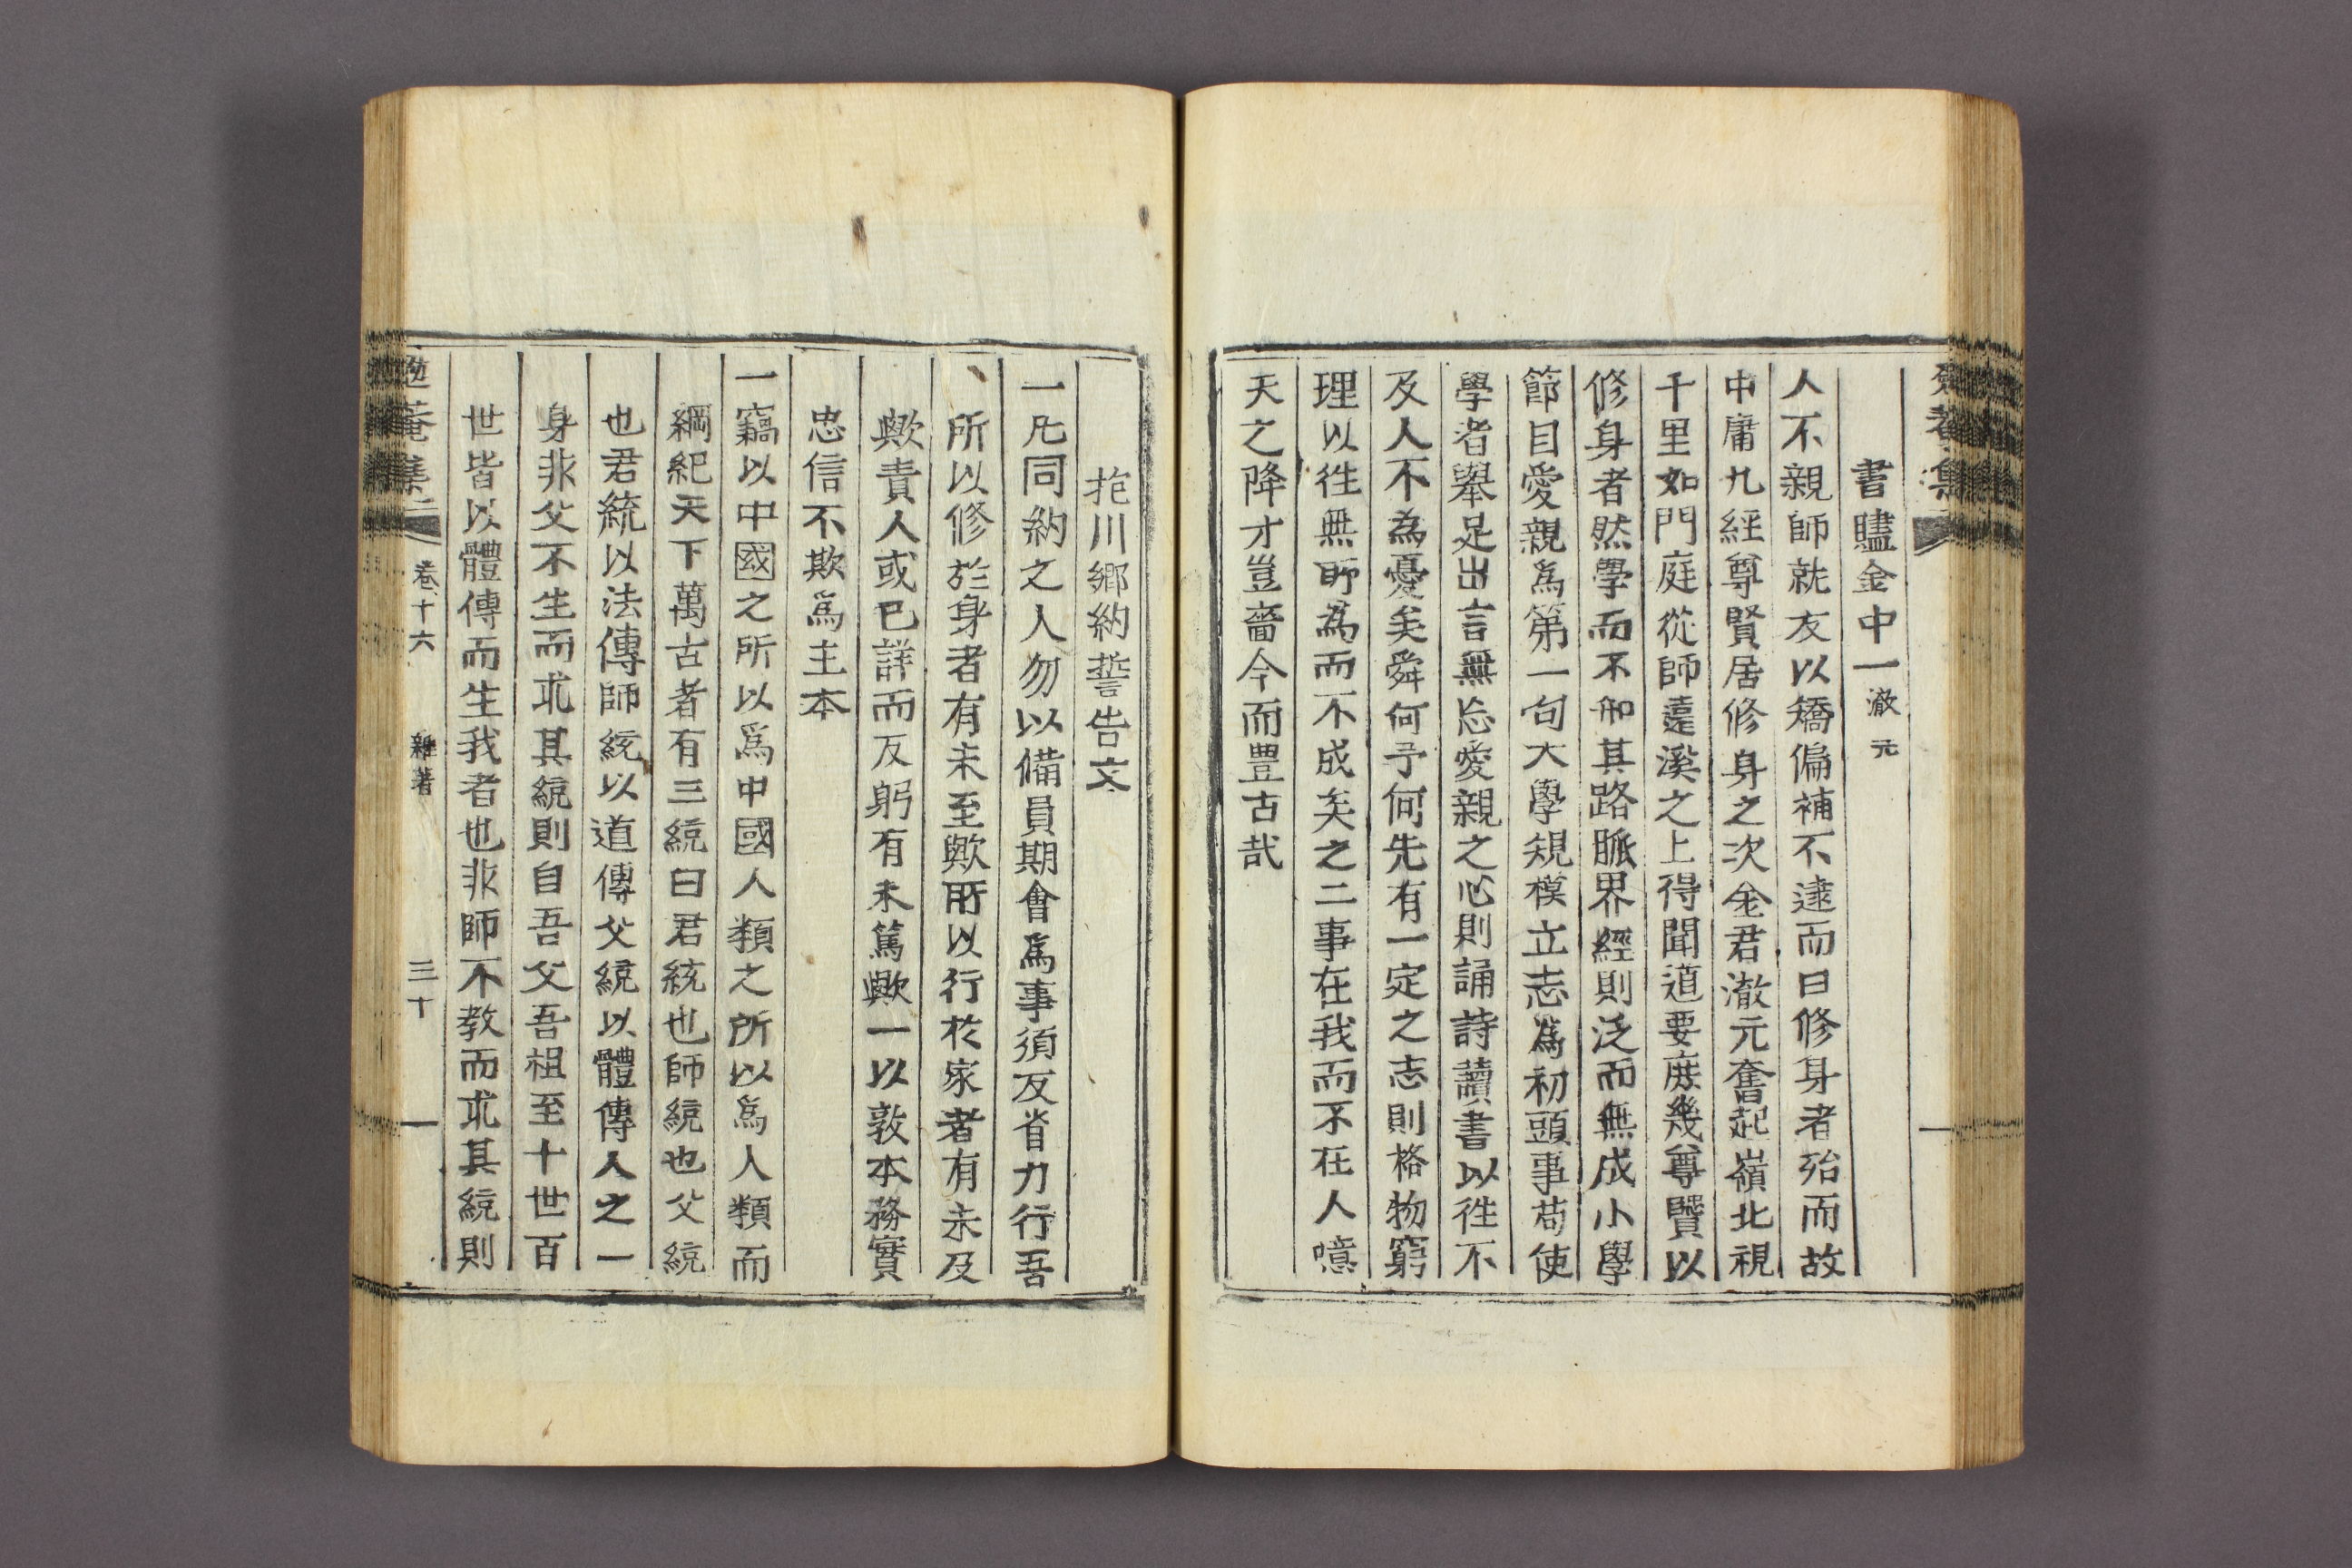 書贐金中一 澈元
人不親師就友以矯偏補不逮而曰修身者殆而故
中庸九經尊賢居修身之次金君澈元奮起嶺北視
千里如門庭從師薳溪之上得聞道要庶幾尊賢以
修身者然學而不知其路脈界經則泛而無成小學
節目愛親爲第一句大學規模立志爲初頭事苟使
學者擧足出言無忘愛親之心則誦詩讀書以徃不
及人不為憂矣舜何予何先有一定之志則格物窮
理以徃無所為而不成矣之二事在我而不在人噫
天之降才豈嗇今而豊古哉
抱川鄕約誓告文
一凡同約之人勿以備員期會爲事須反省力行吾
所以修於身者有未至歟所以行於家者有未及
歟責人或已詳而反躬有未篤歟一以敦本務實
忠信不欺爲主本
一竊以中國之所以爲中國人類之所以爲人類而
綱紀天下萬古者有三統曰君統也師統也父統
也君統以法傳師統以道傳父統以體傳人之一
身非父不生而求其統則自吾父吾祖至十世百
世皆以體傳而生我者也非師不教而求其統則
卷十六 雜著 三十一